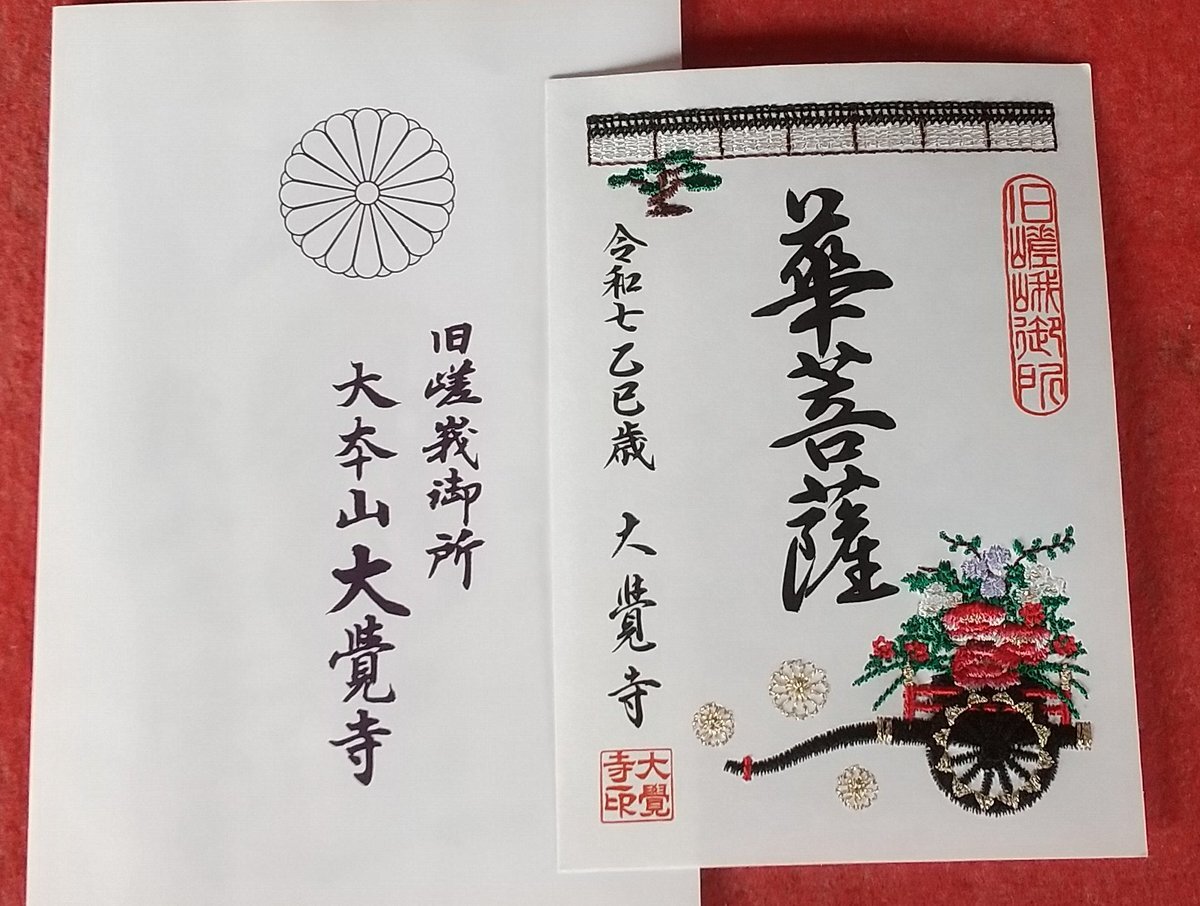 旧嵯峩御所
大本山大覺寺
旧嵯峨御所
華菩薩
令和七乙巳歳 大覺寺
大覺
寺印